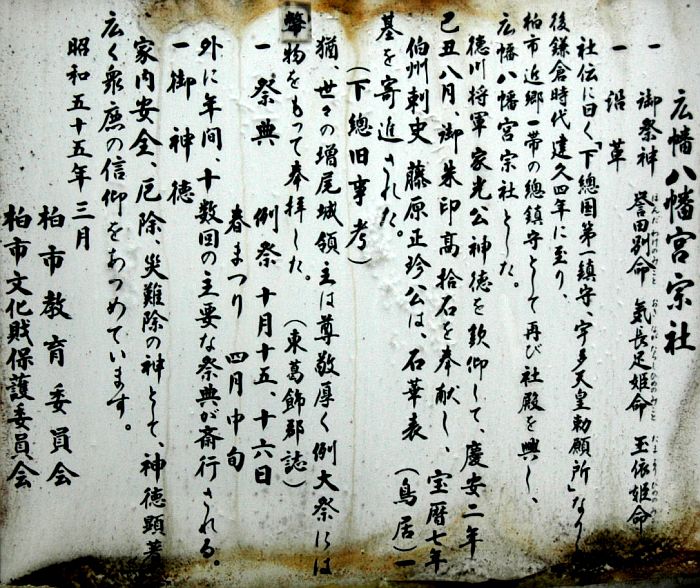 広幡八幡宮宗社
一 御祭神 誉田別命 気長足姫命 玉依姫命
ほんだわけのみこと おきながたらしひめのみこと たまよりひめのみこと
一 沿革
社伝に曰く「下総国第一鎮守、宇多天皇勅願所」なり
後鎌倉時代建久四年に至り、
柏市近郷一帯の總鎮守として再び社殿を興し、
広幡八幡宮宗社とした。
徳川将軍家光公神徳を欽仰して、慶安二年
己丑八月、御朱印高拾石を奉献し、宝暦七年
伯州刺史 藤原正珍公は、石華表(鳥居)一
基を寄進された。
(下總旧事考)
猶、世々の増尾城領主は尊敬厚く例大祭には
幣物をもって奉拝した。(東葛飾郡誌)
一 祭典 例祭 十月十五、十六日
春まつり 四月中旬
外に年間、十数回の主要な祭典が斎行される。
一 御神徳
家内安全、厄除、災難除の神として、神徳顕著
広く衆庶の信仰をあつめています。
昭和五十五年三月
柏市教育委員会
柏市文化財保護委員会